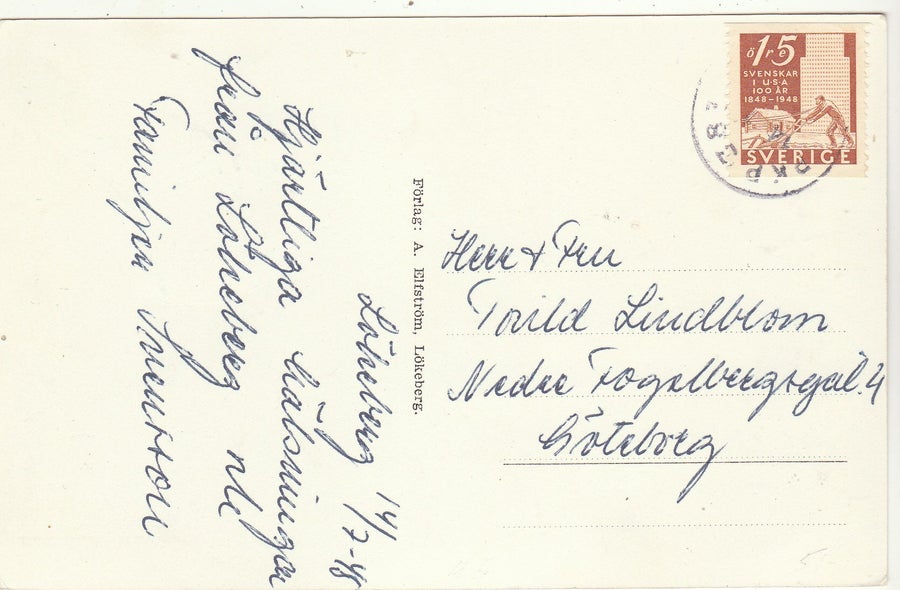 Lökeberg 14/7-48
Hjärtliga hälsningar
från Lökeberg
Familjen
Förlag: A. Elfström, Lökeberg.
öre 15
SVENSKAR
I U·S·A
100 ÅR
1848–1948
SVERIGE
Herr & Fru
Torild Lindblom
Nedre Fogelbergsgat. 4
Göteborg